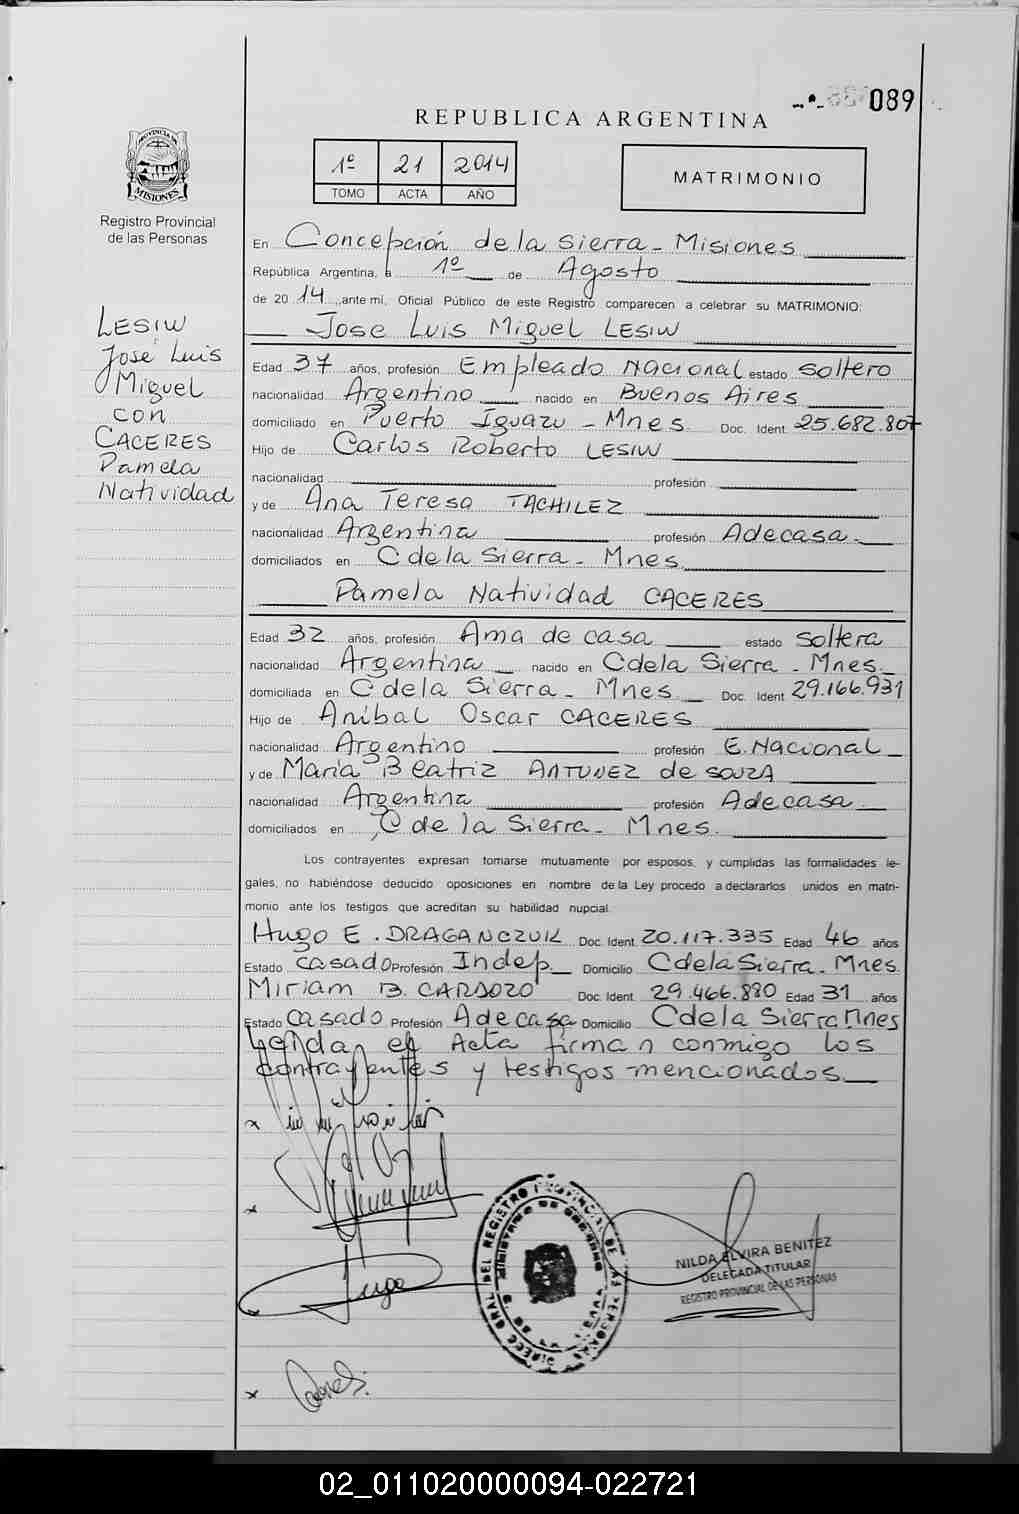 089
REPUBLICA ARGENTINA
1º 21 2014
TOMO ACTA AÑO
MATRIMONIO
PROVINCIA DE
MISIONES
Registro Provincial
de las Personas
LESIW
José Luis
Miguel
con
CACERES
Pamela
Natividad
En Concepción de la Sierra - Misiones
República Argentina, a 1º de Agosto
de 20 14, ante mí, Oficial Público de este Registro comparecen a celebrar su MATRIMONIO:
Jose Luis Miguel LESIW
Edad 37 años, profesión Empleado Nacional estado soltero
nacionalidad Argentino nacido en Buenos Aires
domiciliado en Puerto Iguazu - Mnes. Doc. Ident. 25.682.807
Hijo de Carlos Roberto LESIW
nacionalidad profesión
y de Ana Teresa TACHILEZ
nacionalidad Argentina profesión Adecasa.
domiciliados en C de la Sierra - Mnes.
Pamela Natividad CACERES
Edad 32 años, profesión Ama de casa estado soltera
nacionalidad Argentina nacido en C de la Sierra - Mnes.
domiciliada en C de la Sierra - Mnes. Doc. Ident 29.166.931
Hijo de Anibal Oscar CACERES
nacionalidad Argentino profesión E. Nacional
y de Maria Beatriz ANTUNEZ de SOUZA
nacionalidad Argentina profesión Adecasa
domiciliados en C de la Sierra - Mnes.
Los contrayentes expresan tomarse mutuamente por esposos, y cumplidas las formalidades le-
gales, no habiéndose deducido oposiciones en nombre de la Ley procedo a declararlos unidos en matri-
monio ante los testigos que acreditan su habilidad nupcial.
Hugo E. DRAGANCZUK Doc. Ident. 20.117.335 Edad 46 años
Estado casado Profesión Indep. Domicilio C de la Sierra - Mnes.
Miriam B. CARDOZO Doc. Ident. 29.466.880 Edad 31 años
Estado casado Profesión Adecasa Domicilio C de la Sierra Mnes
Leida el Acta firman conmigo los
contrayentes y testigos mencionados.
x
x
Hugo
x
DIRECC. GRAL. DEL REGISTRO PROVINCIAL DE LAS PERSONAS
MINISTERIO DE GOBIERNO
NILDA ELVIRA BENITEZ
DELEGADA TITULAR
REGISTRO PROVINCIAL DE LAS PERSONAS
02_011020000094-022721